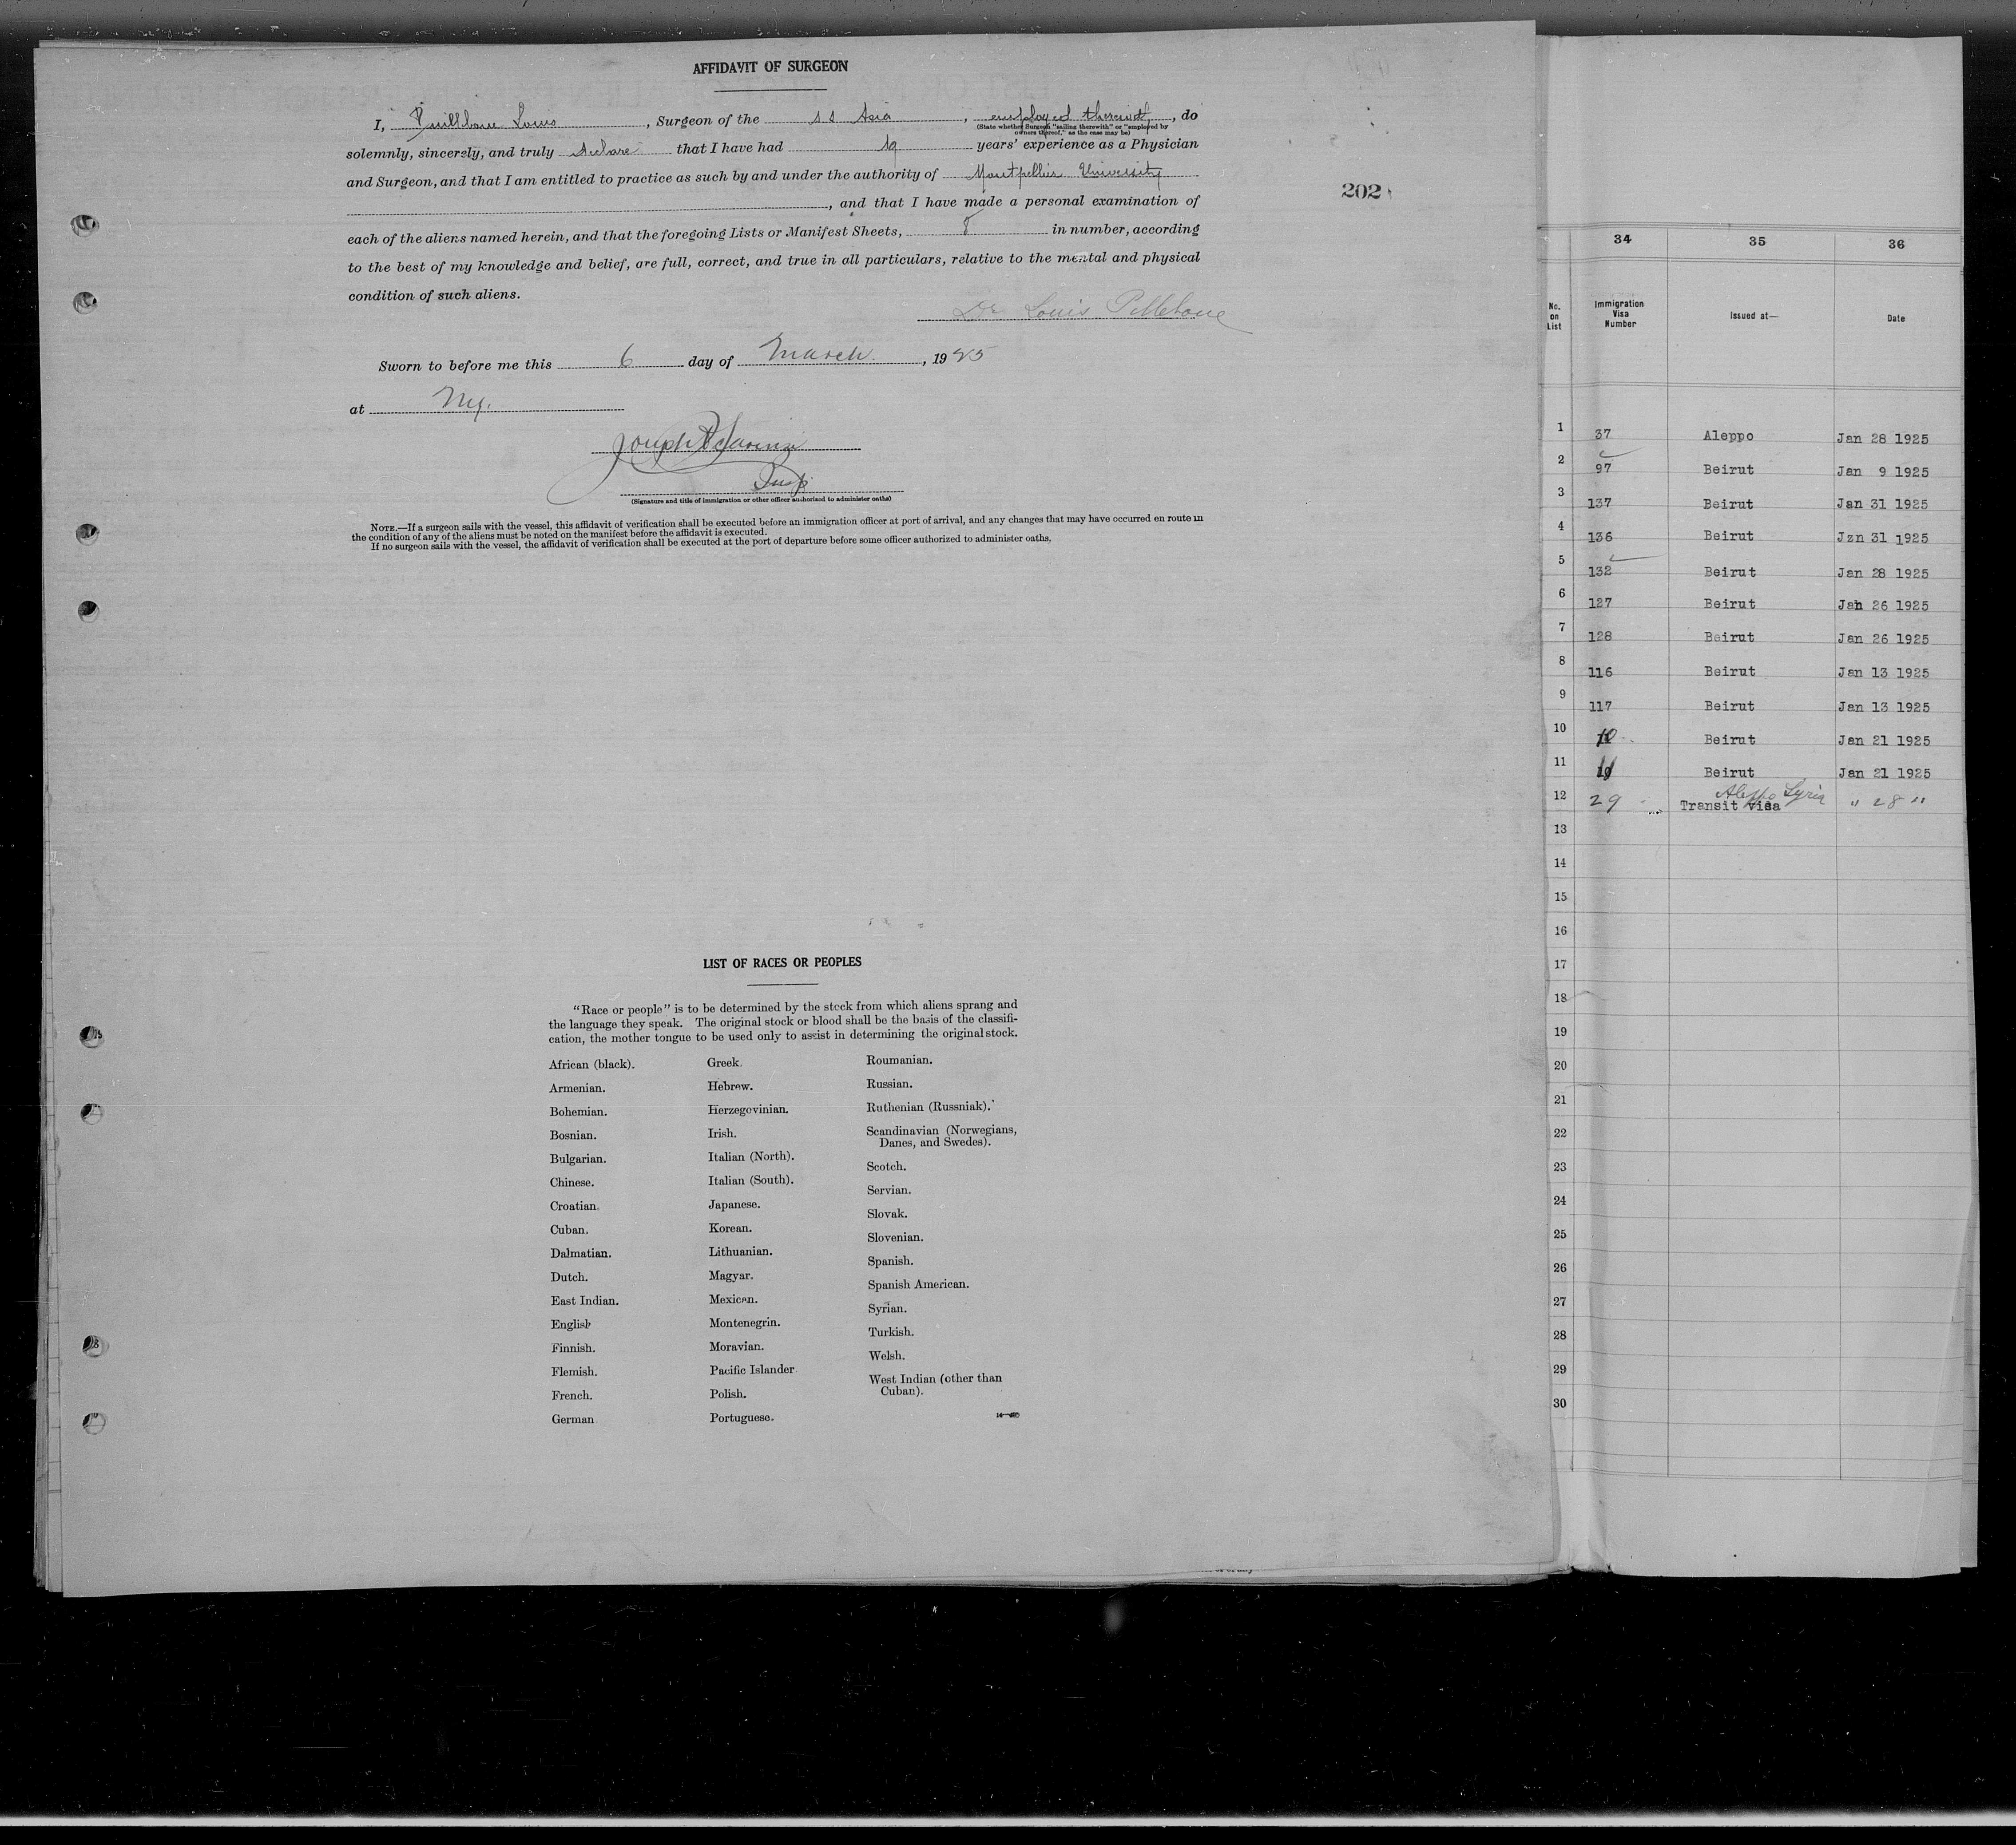 AFFIDAVIT OF SURGEON
I, Louis, Surgeon of the s s Asia, employed therewith, do
(State whether Surgeon "sailing therewith" or "employed by
owners thereof," as the case may be)
solemnly, sincerely, and truly declare that I have had 19 years' experience as a Physician
and Surgeon, and that I am entitled to practice as such by and under the authority of Montpellier University
, and that I have made a personal examination of
each of the aliens named herein, and that the foregoing Lists or Manifest Sheets, 8 in number, according
to the best of my knowledge and belief, are full, correct, and true in all particulars, relative to the mental and physical
condition of such aliens.
Dr Louis
Sworn to before me this 6 day of March, 1925
at Ny.
Joseph
Insp
(Signature and title of immigration or other officer authorized to administer oaths)
NOTE.—If a surgeon sails with the vessel, this affidavit of verification shall be executed before an immigration officer at port of arrival, and any changes that may have occurred en route in
the condition of any of the aliens must be noted on the manifest before the affidavit is executed.
If no surgeon sails with the vessel, the affidavit of verification shall be executed at the port of departure before some officer authorized to administer oaths.
LIST OF RACES OR PEOPLES
"Race or people" is to be determined by the stock from which aliens sprang and
the language they speak. The original stock or blood shall be the basis of the classifi-
cation, the mother tongue to be used only to assist in determining the original stock.
African (black).
Armenian.
Bohemian.
Bosnian.
Bulgarian.
Chinese.
Croatian.
Cuban.
Dalmatian.
Dutch.
East Indian.
English
Finnish.
Flemish.
French.
German
Greek.
Hebrew.
Herzegovinian.
Irish.
Italian (North).
Italian (South).
Japanese.
Korean.
Lithuanian.
Magyar.
Mexican.
Montenegrin.
Moravian.
Pacific Islander
Polish.
Portuguese.
Roumanian.
Russian.
Ruthenian (Russniak).
Scandinavian (Norwegians,
Danes, and Swedes).
Scotch.
Servian.
Slovak.
Slovenian.
Spanish.
Spanish American.
Syrian.
Turkish.
Welsh.
West Indian (other than
Cuban).
202
34 35 36
No.
on
List
Immigration
Visa
Number
Issued at—
Date
1 37 Aleppo Jan 28 1925
2 97 Beirut Jan 9 1925
3 137 Beirut Jan 31 1925
4 136 Beirut Jzn 31 1925
5 132 Beirut Jan 28 1925
6 127 Beirut Jan 26 1925
7 128 Beirut Jan 26 1925
8 116 Beirut Jan 13 1925
9 117 Beirut Jan 13 1925
10 10 Beirut Jan 21 1925
11 11 Beirut Jan 21 1925
Aleppo Syria
12 29 Transit visa " 28 "
13
14
15
16
17
18
19
20
21
22
23
24
25
26
27
28
29
30